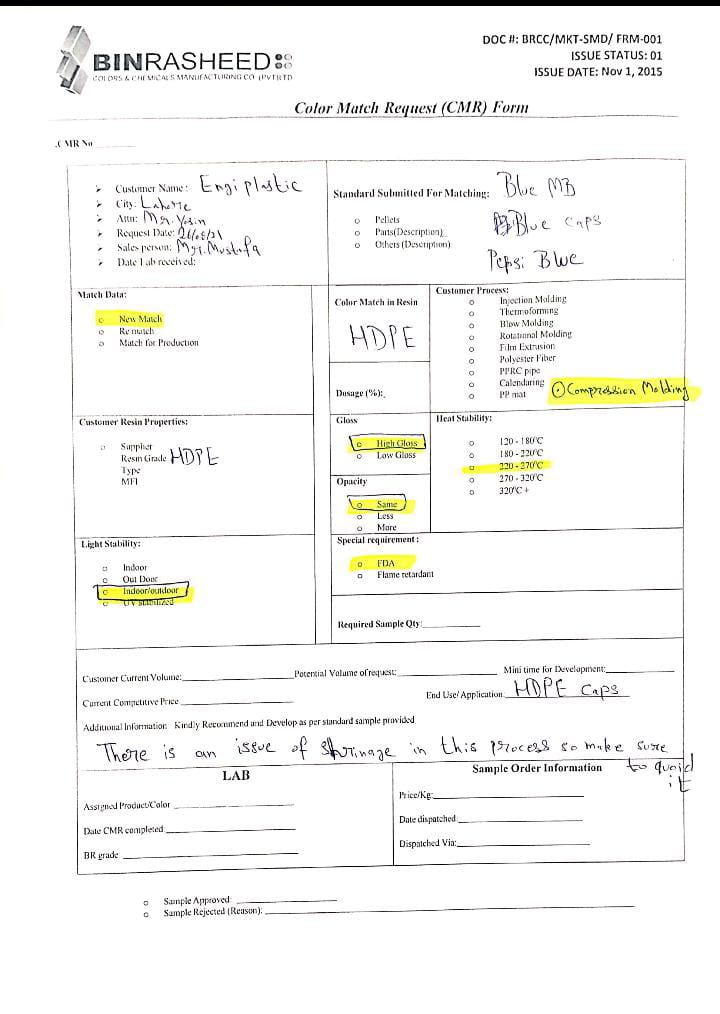 BINRASHEED
COLORS & CHEMICALS MANUFACTURING CO. (PVT) LTD
DOC #: BRCC/MKT-SMD/ FRM-001
ISSUE STATUS: 01
ISSUE DATE: Nov 1, 2015
Color Match Request (CMR) Form
.CMR No
Customer Name: Engiplastic
City: Lahore
Attn: Mr. Yasin
Request Date: 26/08/21
Sales person: Mr. Mustafa
Date Lab received:
Standard Submitted For Matching: Blue MB
Pellets
Parts(Description) Blue Caps
Others (Description)
Pepsi Blue
Match Data:
New Match
Re match
Match for Production
Color Match in Resin
HDPE
Dosage (%):
Customer Process:
Injection Molding
Thermoforming
Blow Molding
Rotational Molding
Film Extrusion
Polyester Fiber
PPRC pipe
Calendaring
PP mat
Compression Molding
Customer Resin Properties:
Supplier
Resin Grade HDPE
Type
MFI
Gloss
High Gloss
Low Gloss
Opacity
Same
Less
More
Heat Stability:
120 - 180°C
180 - 220°C
220 - 270°C
270 - 320°C
320°C +
Light Stability:
Indoor
Out Door
Indoor/outdoor
UV stabilized
Special requirement:
FDA
Flame retardant
Required Sample Qty:
Customer Current Volume:
Potential Volume of request:
Mini time for Development:
Current Competitive Price
End Use/ Application: HDPE Caps
Additional Information: Kindly Recommend and Develop as per standard sample provided
There is an issue of shrinage in this process so make sure
to quoid
it
LAB
Assigned Product/Color
Date CMR completed:
BR grade
Sample Order Information
Price/Kg:
Date dispatched:
Dispatched Via:
Sample Approved:
Sample Rejected (Reason):